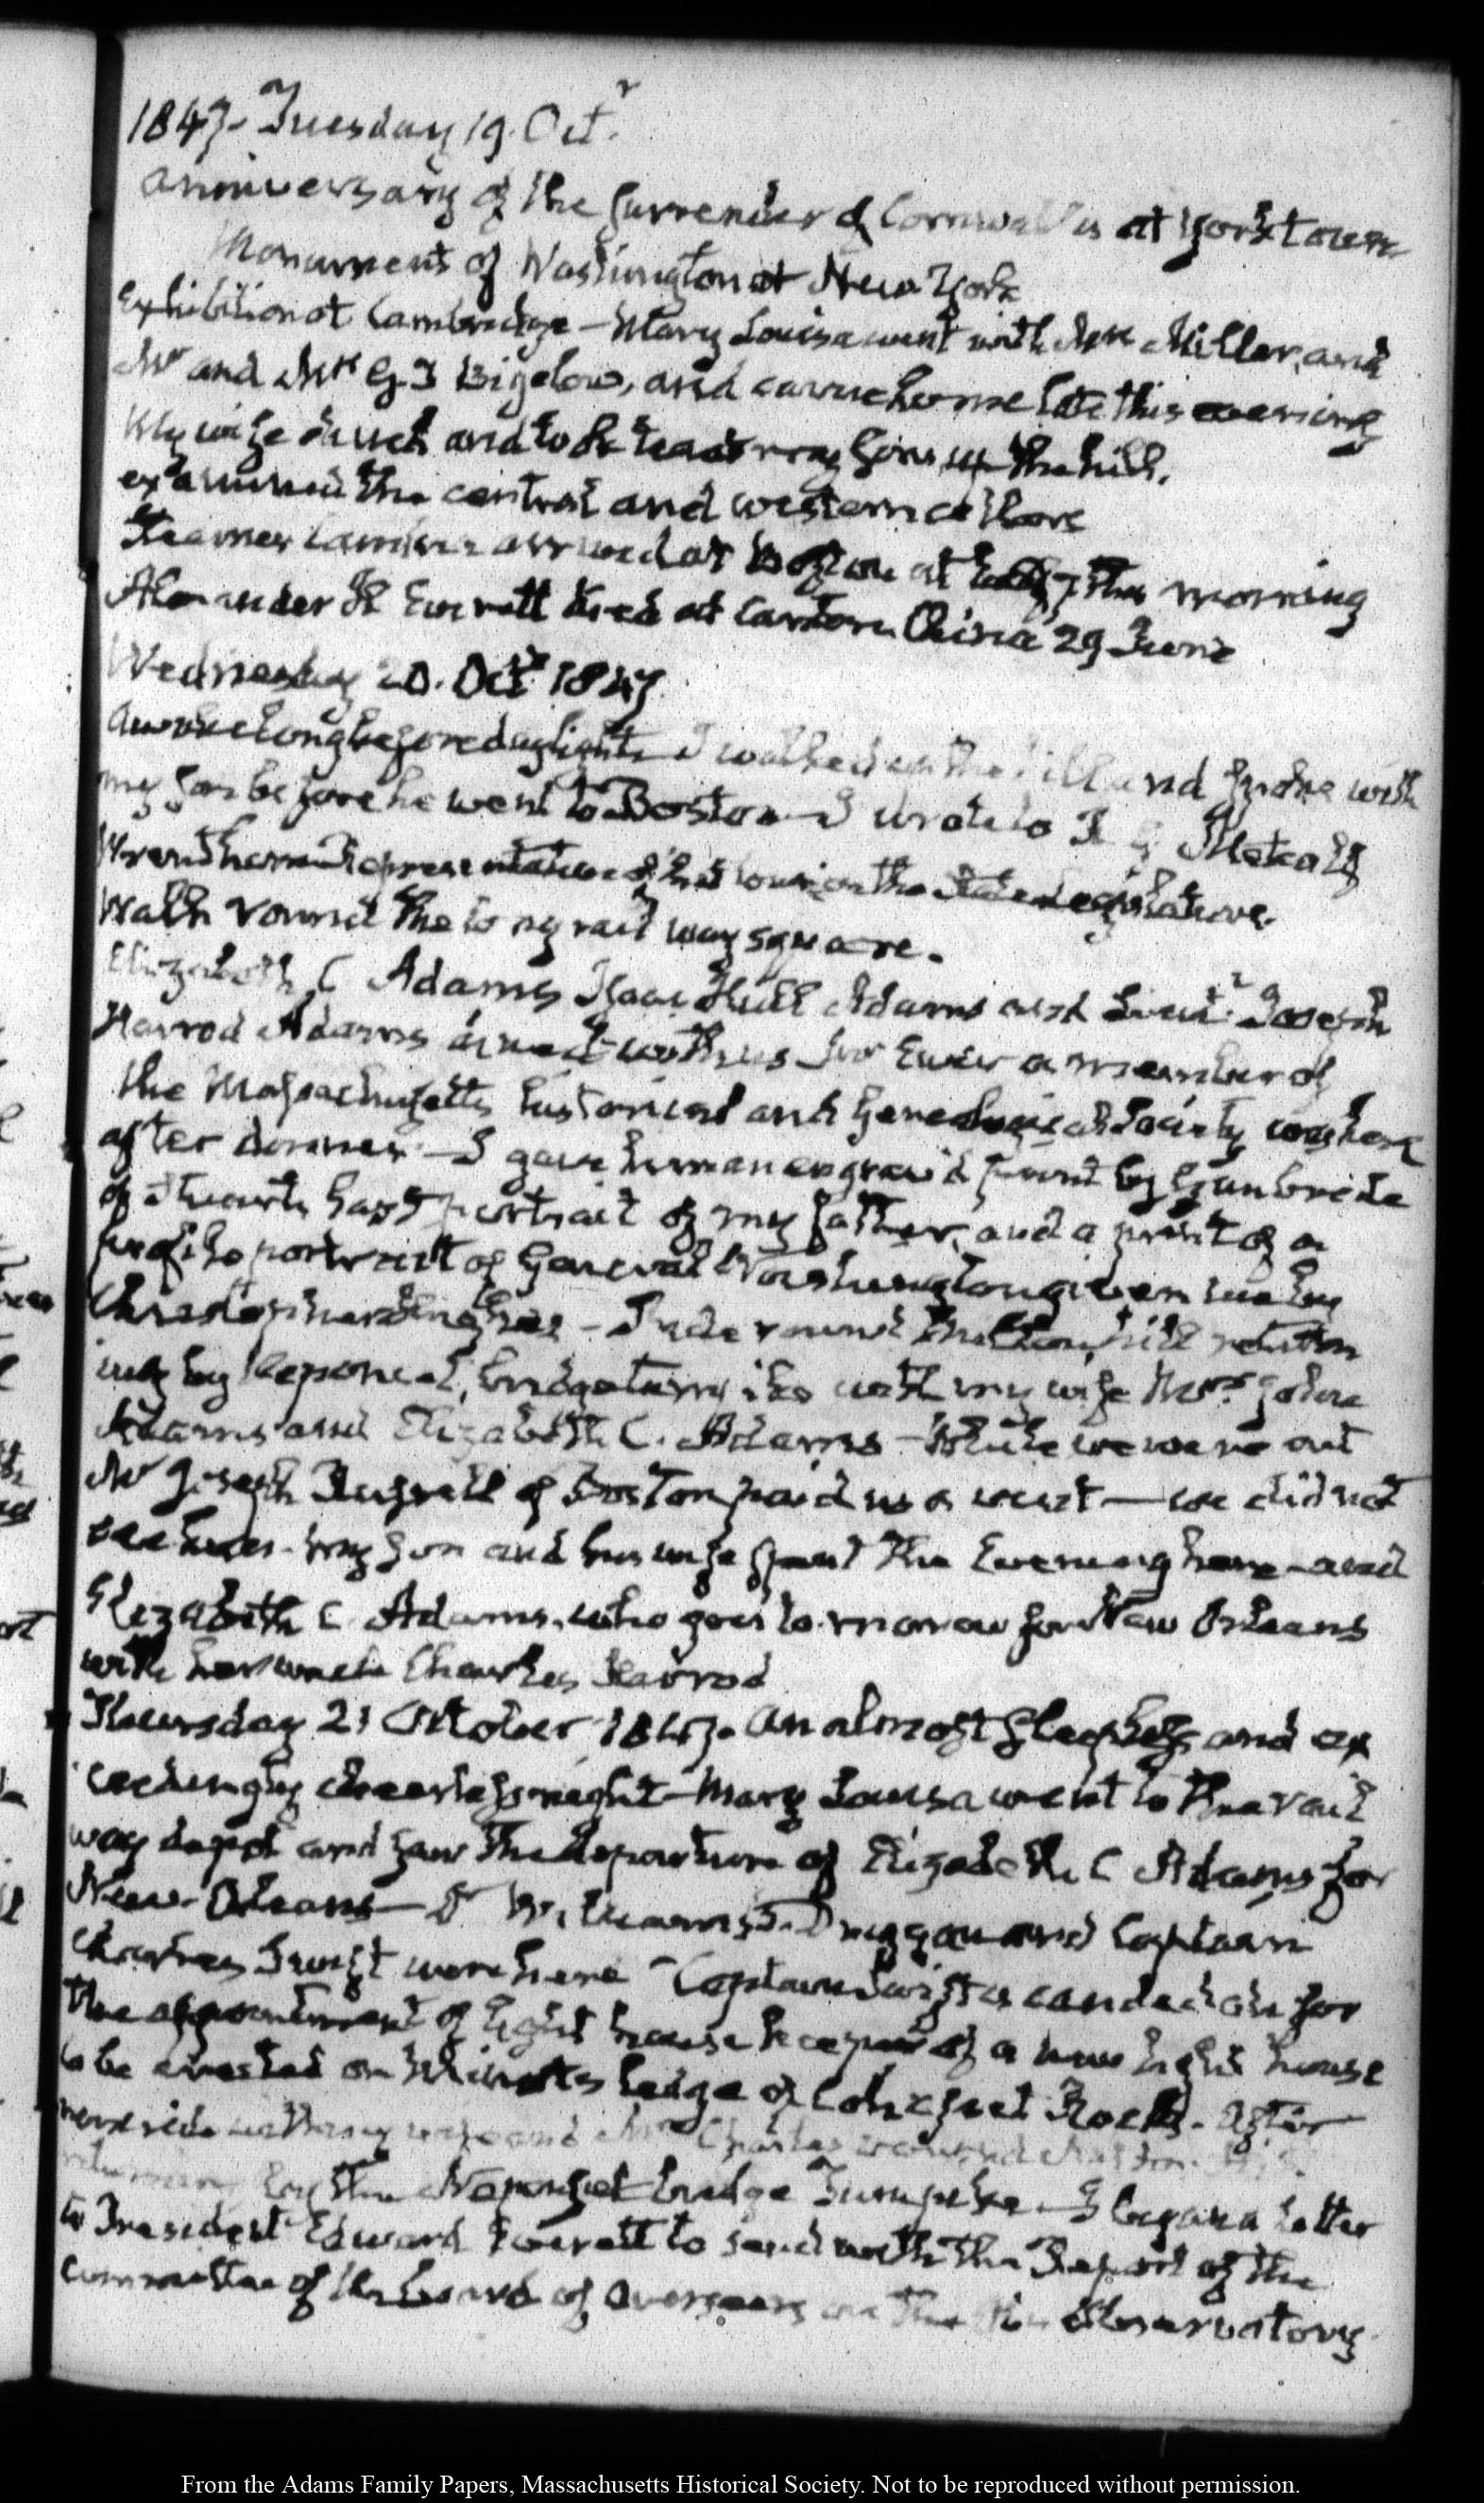 1847. Tuesday 19. Octr.
Anniversary of the surrender of Cornwallis at Yorktown
Monument of Washington at New York
Exhibition at Cambridge — Mary Louisa went with Mrs Miller, and
Mr and Mrs G. T Bigelow, and came home late this evening
My wife and took tea at my sons up the hill.
examined the central and western cellars
Steamer Cambria arrived at Boston at this morning
Alexander H Everett died at Canton China 29 June
Wednesday 20. Octr 1847
Awoke long before daylight I walked up the hill and spoke with
my son before he went to Boston — I wrote to Metcalf
Wrentham representative of that town in the State Legislature.
Walk round the to railway square.
Elizabeth C Adams Isaac Hull Adams and Lieutt Joseph
Harrod Adams dined with us Mr Ewer a member of
the Massachusetts historical and Genealogical Society was here
after dinner — I gave him an engraved print by
of Stuarts last portrait of my father, and a print of a
profile portrait of General Washington given me by
Christopher Hughes — Ride round Milton hill return
ing by Neponset, bridge turnpike with my wife Mrs John
Adams and Elizabeth C. Adams — While we were out
Mr Joseph Russell of Boston paid us a visit — we did not
see him. My son and his wife spent the Evening here — and
Elizabeth C. Adams, who goes to-morrow for New Orleans
with her uncle Charles Harrod
Thursday 21 October 1847. An almost sleepless and ex
ceedingly cheerless night — Mary Louisa went to the rail
way depot and saw the departure of Elizabeth C Adams for
New-Orleans — Dr Duggan and Captain
Charles Swift were here — Captain Swift is candidate for
the appointment of light house keeper of a new light house
to be erected on Minots ledge of Cohasset Rocks. After
ride with my wife and Mrs Charles round Milton
returning by the Neponset bridge Turnpike — I began a letter
to President Edward Everett to send with the Report of the
committee of the board of Overseers on the Observatory